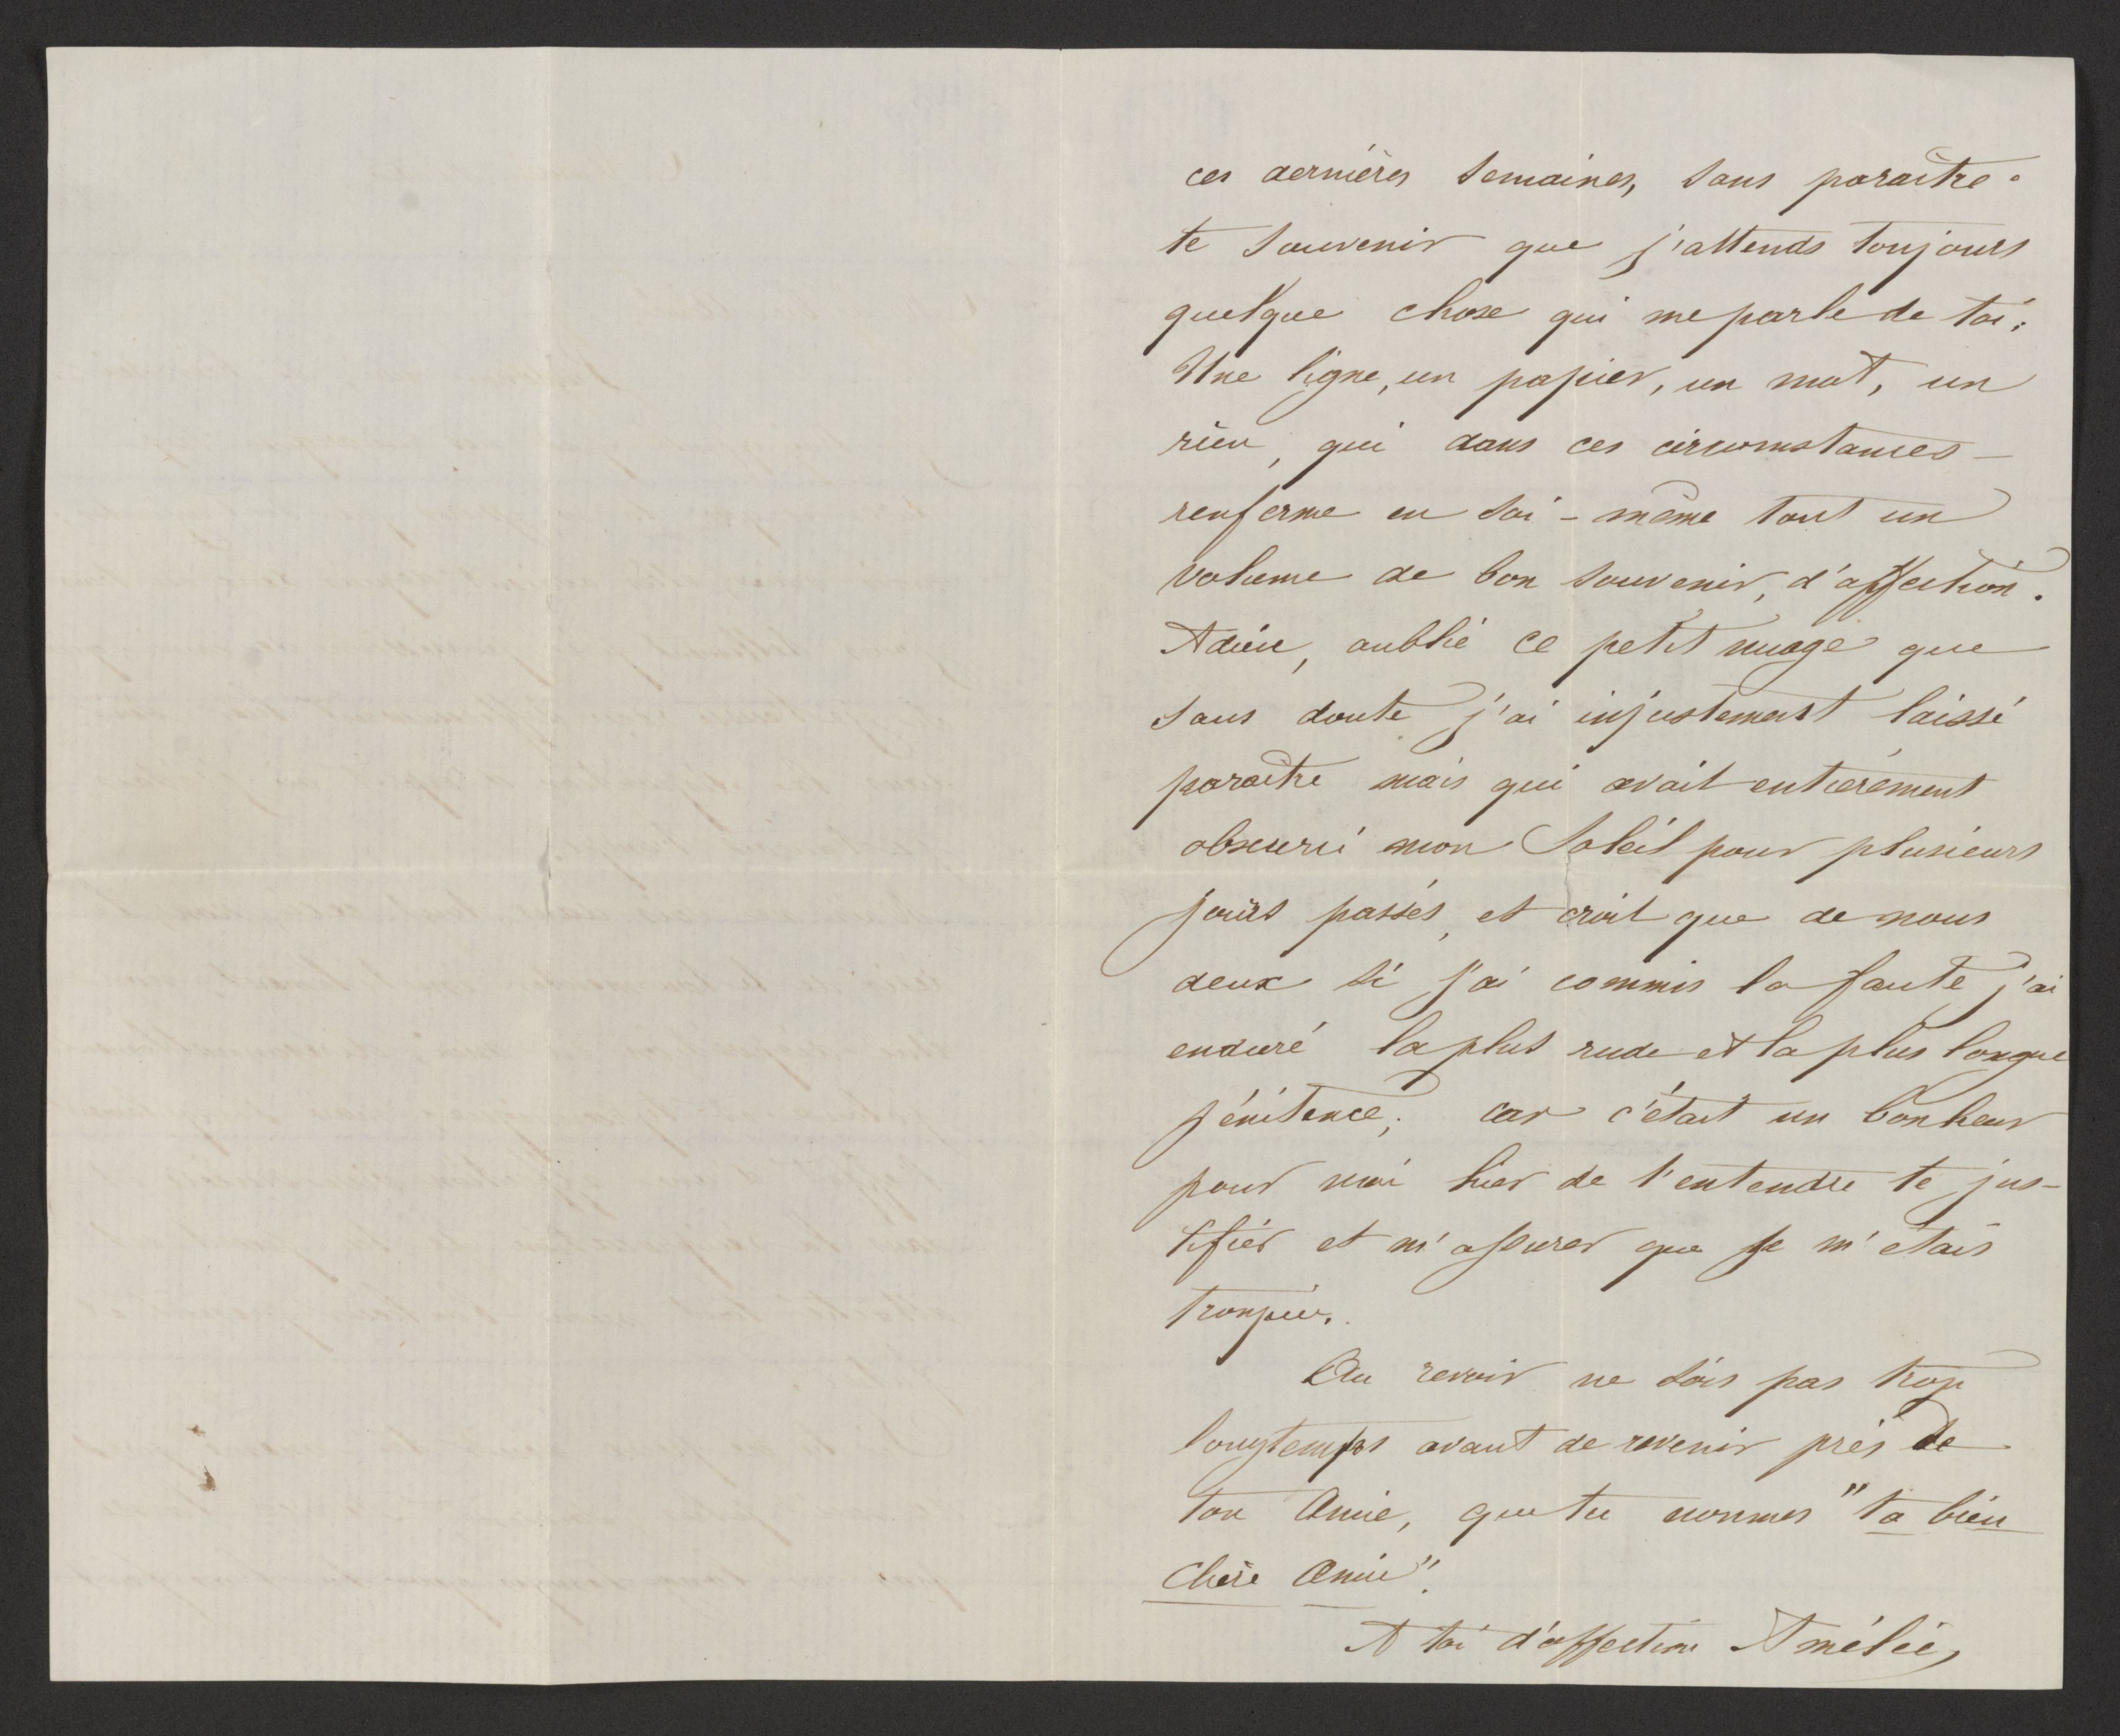 ces dernières semaines, sans paraître
te souvenir que j'attends toujours
quelque chose qui me parle de toi;
Une ligne, un papier, un mot, un
rien, qui dans ces circomstances –
renferme en soi-même tout un
volume de bon souvenir, d'affection.
Adieu, oublié ce petit nuage que
sans doute j'ai injustement laissé
paraître mais qui avait entièrement
obscurci mon Soleil pour plusieurs
jours passés, et croit que de nous
deux si j'ai commis la faute j'ai
enduré la plus rude et la plus longue
pénitence; car c'était un bonheur
pour moi hier de t'entendre te jus-
tifier et m'assurer que je m'étais
trompée.
Au revoir ne sois pas trop
longtemps avant de revenir près de
ton Amie, que tu nommes "ta bien
Chère Amie".
A toi d'affection Amélie